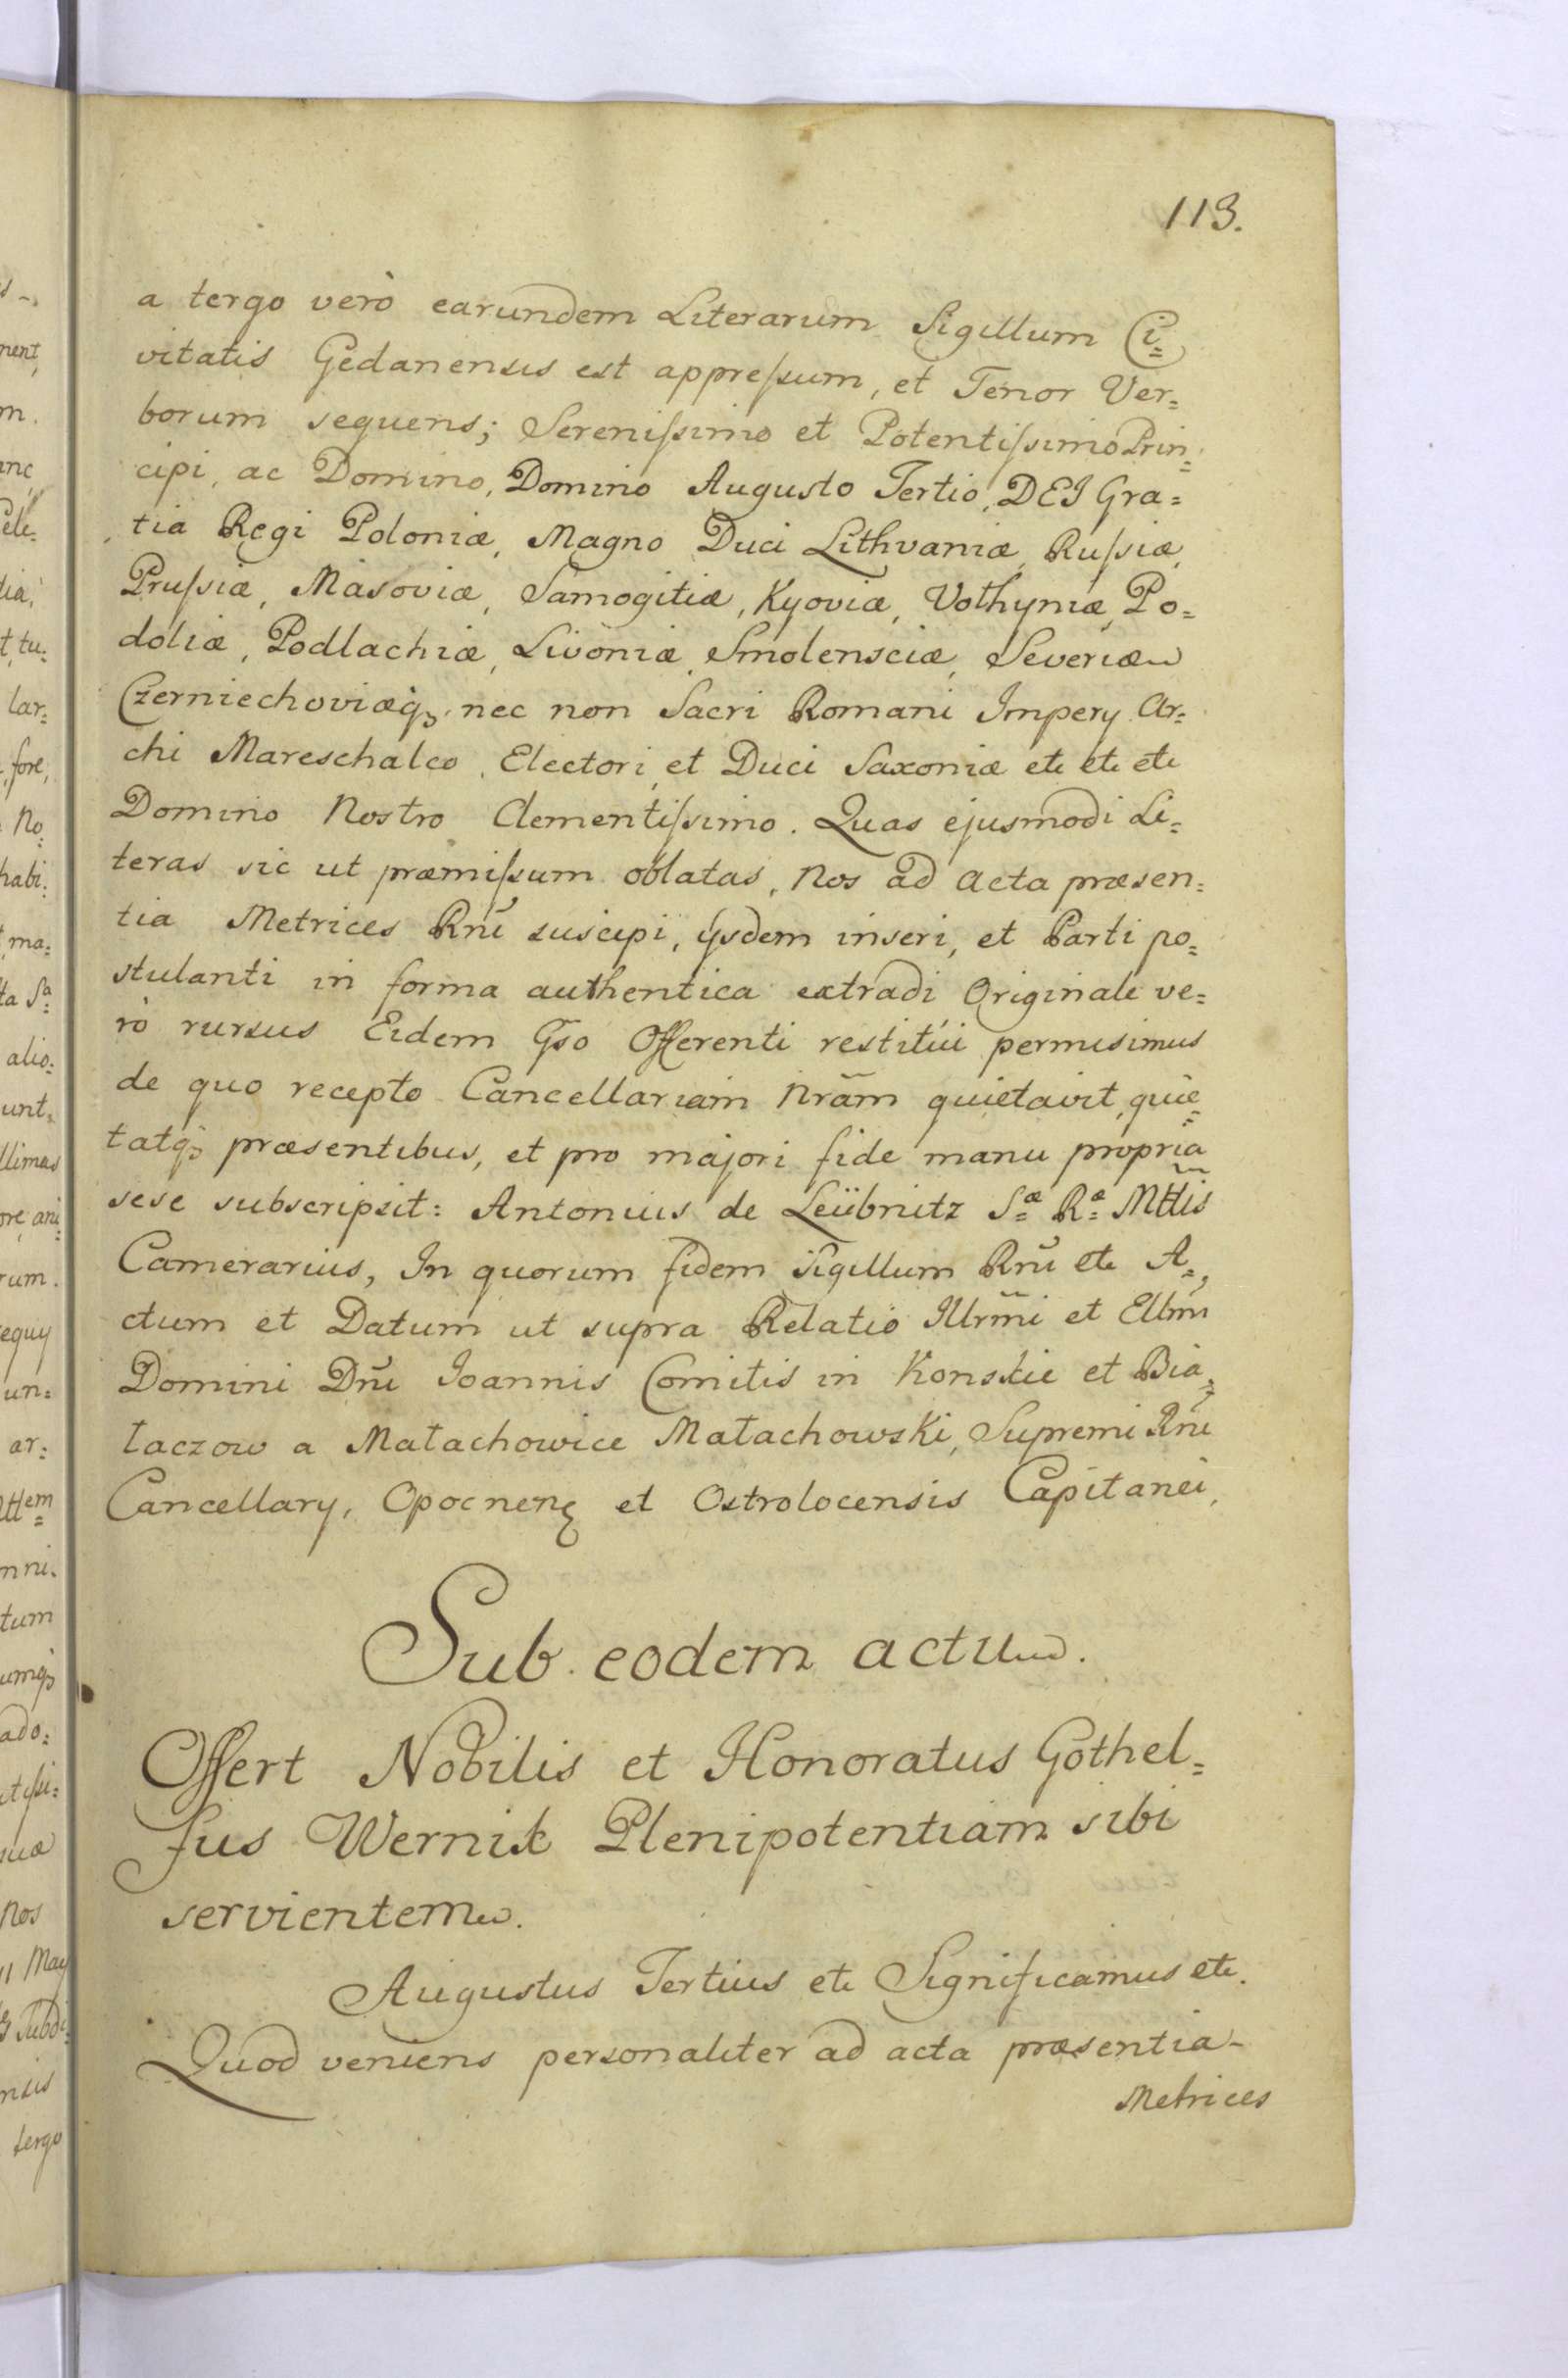 113.
a tergo verò earundem Literarum Sigillum Ci=
vitatis Gedanensis est appreſsum, et Tenor Ver=
borum sequens; Sereniſsimo et Potentiſsimo Prin=
cipi, ac Domino, Domino Augusto Tertio, DEI Gra=
tia Regi Poloniæ, Magno Duci Lithvaniæ, Ruſsiæ,
Pruſsiæ, Masoviæ, Samogitiæ, Kyoviæ, Volhyniæ, Po=
doliæ, Podlachiæ, Livoniæ, Smolensciæ, Severiæ
Czerniechoviæq̃ꝫ nec non Sacri Romani Impery Ar=
chi Mareschalco, Electori, et Duci Saxoniæ etc etc etc
Domino Nostro Clementiſsimo. Quas ejusmodi Li=
teras sic ut præmiſsum oblatas, Nos ad Acta præsen=
tia Metrices Rñi suscipi, ysdem inseri, et Parti po=
stulanti in forma authentica extradi Originale ve=
rò rursus Eidem Gso Offerenti restitui permisimus
de quo recepto Cancellariam Nrãm quietavit, quie=
tatq̃ꝫ præsentibus, et pro majori fide manu propria
sese subscripsit: Antonius de Leübnitz Sæ Ræ Mttis
Camerarius, In quorum fidem Sigillum Rñi etc A=
ctum et Datum ut supra Relatio Illrm̃i et Ellm̃i
Domini Dñi Joannis Comitis in Konskie et Bia=
łaczow a Małachowice Małachowski, Supremi Rñi
Cancellary, Opocnenꝫ et Ostrolocensis Capitanei,
Sub eodem actu.
Offert Nobilis et Honoratus Gothel=
fus Wernik Plenipotentiam sibi
servientem.
Augustus Tertius etc Significamus etc.
Quod veniens personaliter ad acta præsentia
Metrices